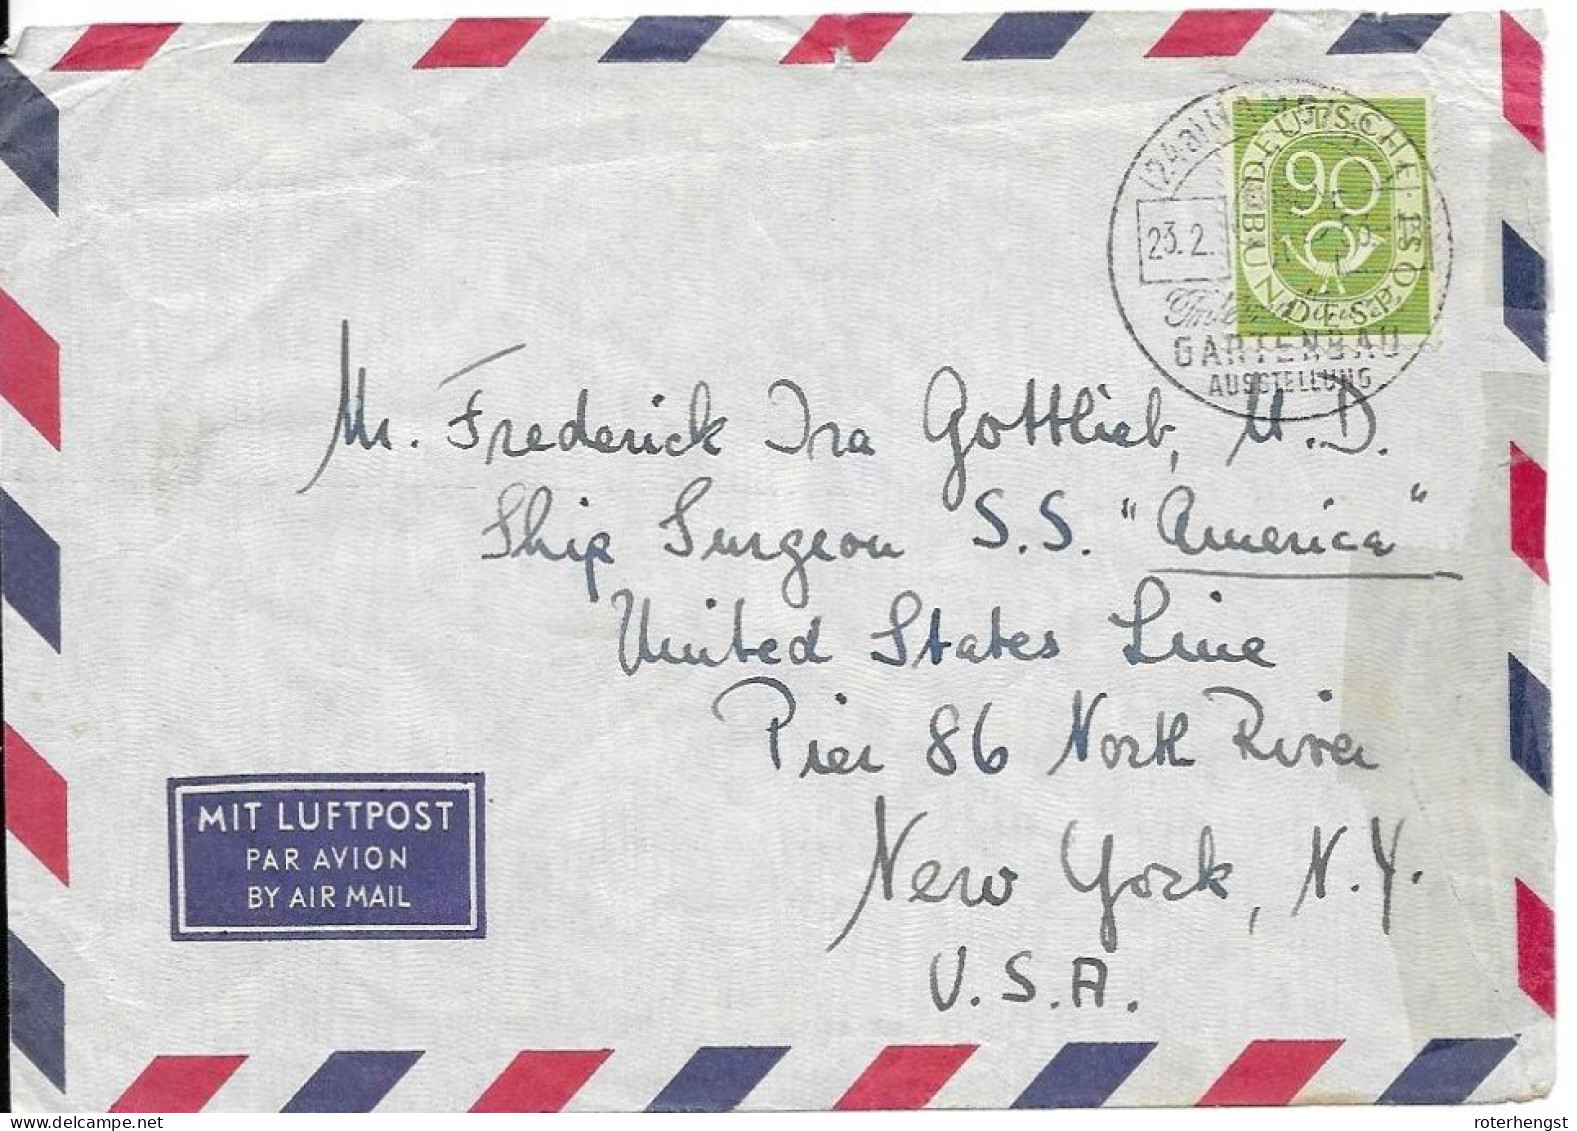 (24a) HAMBURG
23.2.
GARTENBAU
AUSSTELLUNG
DEUTSCHE BUNDESPOST
90
Mr. Frederick Ira Gottlieb, M.D.
Ship Surgeon S.S. "America"
United States Line
Pier 86 North River
New York, N.Y.
U.S.A.
MIT LUFTPOST
PAR AVION
BY AIR MAIL
roterhengst
delcampe.net